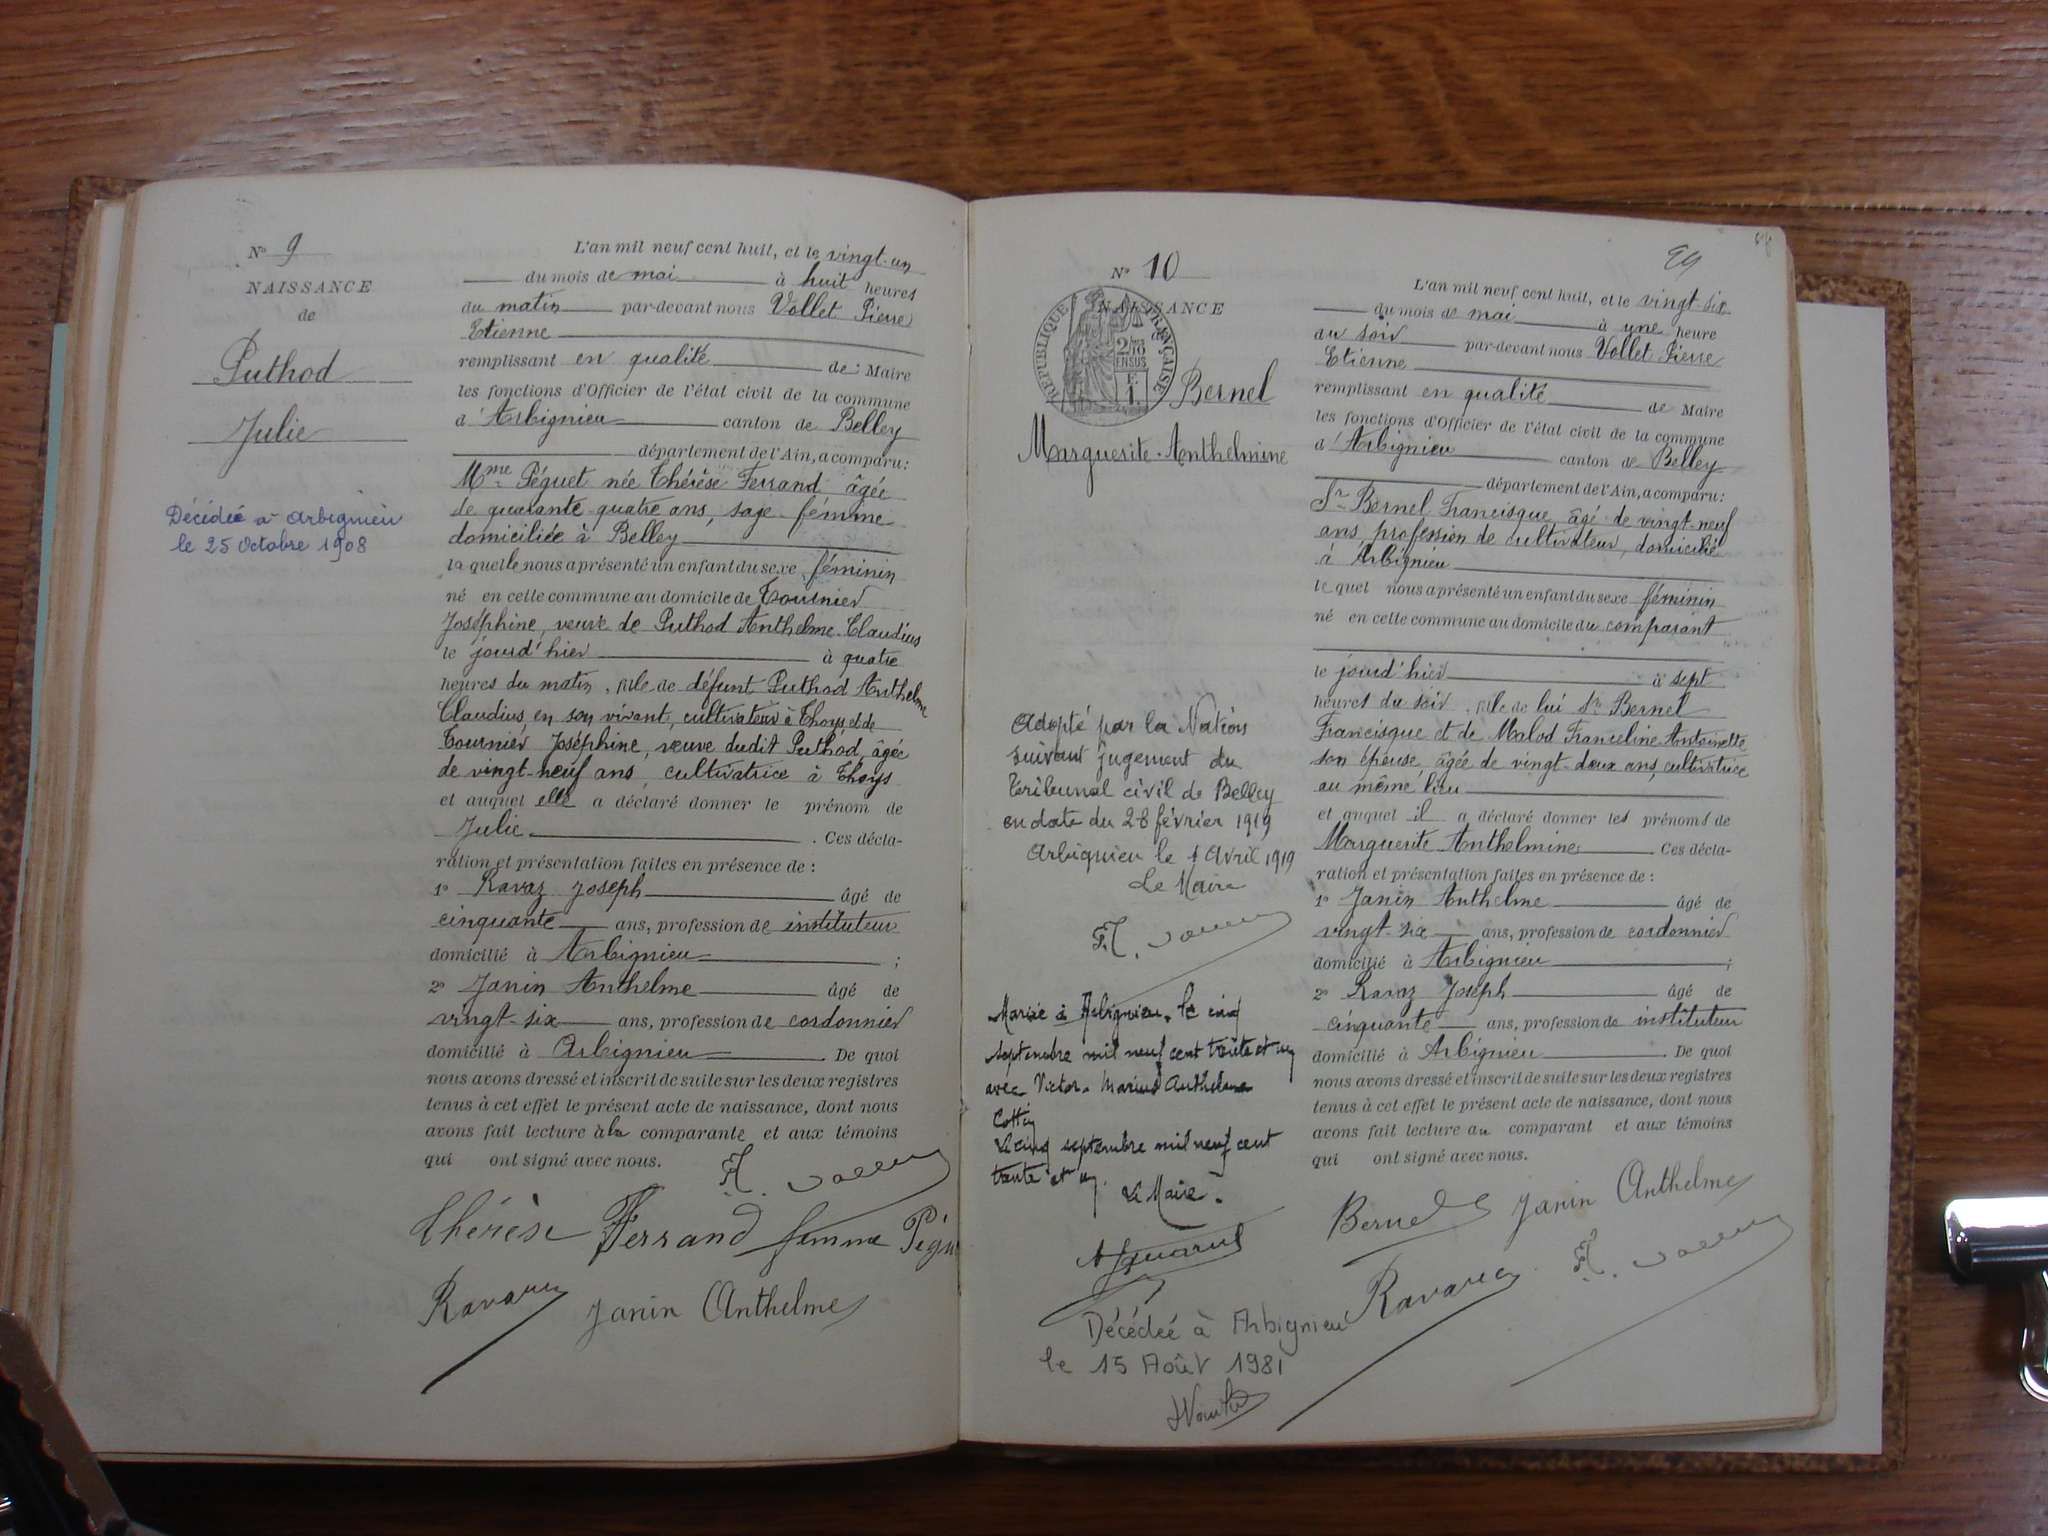 N° 9
NAISSANCE
de
Puthod
Julie
Décédée à Arbignieu
le 25 Octobre 1908
L'an mil neuf cent huit, et le vingt-un
du mois de mai à huit heures
du matin par-devant nous Vollet Pierre
Etienne
remplissant en qualité de Maire
les fonctions d'Officier de l'état civil de la commune
d'Arbignieu canton de Belley
département de l'Ain, a comparu:
Mme Péguet née Thérèse Ferrand, âgée
de quarante-quatre ans, sage-femme
domiciliée à Belley
laquelle nous a présenté un enfant du sexe féminin
né en cette commune au domicile de Tournier
Joséphine, veuve de Puthod Anthelme-Claudius
le jourd'hier à quatre
heures du matin, fille de défunt Puthod Anthelme
Claudius, en son vivant, cultivateur à Thoys et de
Tournier Joséphine, veuve dudit Puthod, âgée
de vingt-neuf ans, cultivatrice à Thoys
et auquel elle a déclaré donner le prénom de
Julie. Ces décla-
ration et présentation faites en présence de :
1° Ravaz Joseph âgé de
cinquante ans, profession de instituteur
domicilié à Arbignieu ;
2° Janin Anthelme âgé de
vingt-six ans, profession de cordonnier
domicilié à Arbignieu. De quoi
nous avons dressé et inscrit de suite sur les deux registres
tenus à cet effet le présent acte de naissance, dont nous
avons fait lecture à la comparante et aux témoins
qui ont signé avec nous.
Thérèse Ferrand femme Pégu
Janin Anthelme
N° 10
NAISSANCE
RÉPUBLIQUE FRANÇAISE
2/10
EN SUS
1
Bernel
Marguerite-Anthelmine
Adopté par la Nation
suivant jugement du
Tribunal civil de Belley
en date du 28 février 1919
Arbignieu le 1 Avril 1919
Le Maire
Mariée à Arbignieu, le cinq
septembre mil neuf cent trente et un
avec Victor-Marius Anthelme
Cottin
Le cinq septembre mil neuf cent
trente et un.
Le Maire.
Décédée à Arbignieu
le 15 Août 1981
29
L'an mil neuf cent huit, et le vingt six
du mois de mai à une heure
du soir par-devant nous Vollet Pierre
Etienne
remplissant en qualité de Maire
les fonctions d'Officier de l'état civil de la commune
d'Arbignieu canton de Belley
département de l'Ain, a comparu:
Sr Bernel Francisque âgé de vingt-neuf
ans, profession de cultivateur, domicilié
à Arbignieu
lequel nous a présenté un enfant du sexe féminin
né en cette commune au domicile du comparant
le jourd'hier à sept
heures du soir, fille de lui Sr Bernel
Francisque et de Malod Franceline Antoinette
son épouse, âgée de vingt-deux ans, cultivatrice
au même lieu
et auquel il a déclaré donner les prénoms de
Marguerite Anthelmine. Ces décla-
ration et présentation faites en présence de :
1° Janin Anthelme âgé de
vingt-six ans, profession de cordonnier
domicilié à Arbignieu ;
2° Ravaz Joseph âgé de
cinquante ans, profession de instituteur
domicilié à Arbignieu. De quoi
nous avons dressé et inscrit de suite sur les deux registres
tenus à cet effet le présent acte de naissance, dont nous
avons fait lecture au comparant et aux témoins
qui ont signé avec nous.
Bernel Janin Anthelme